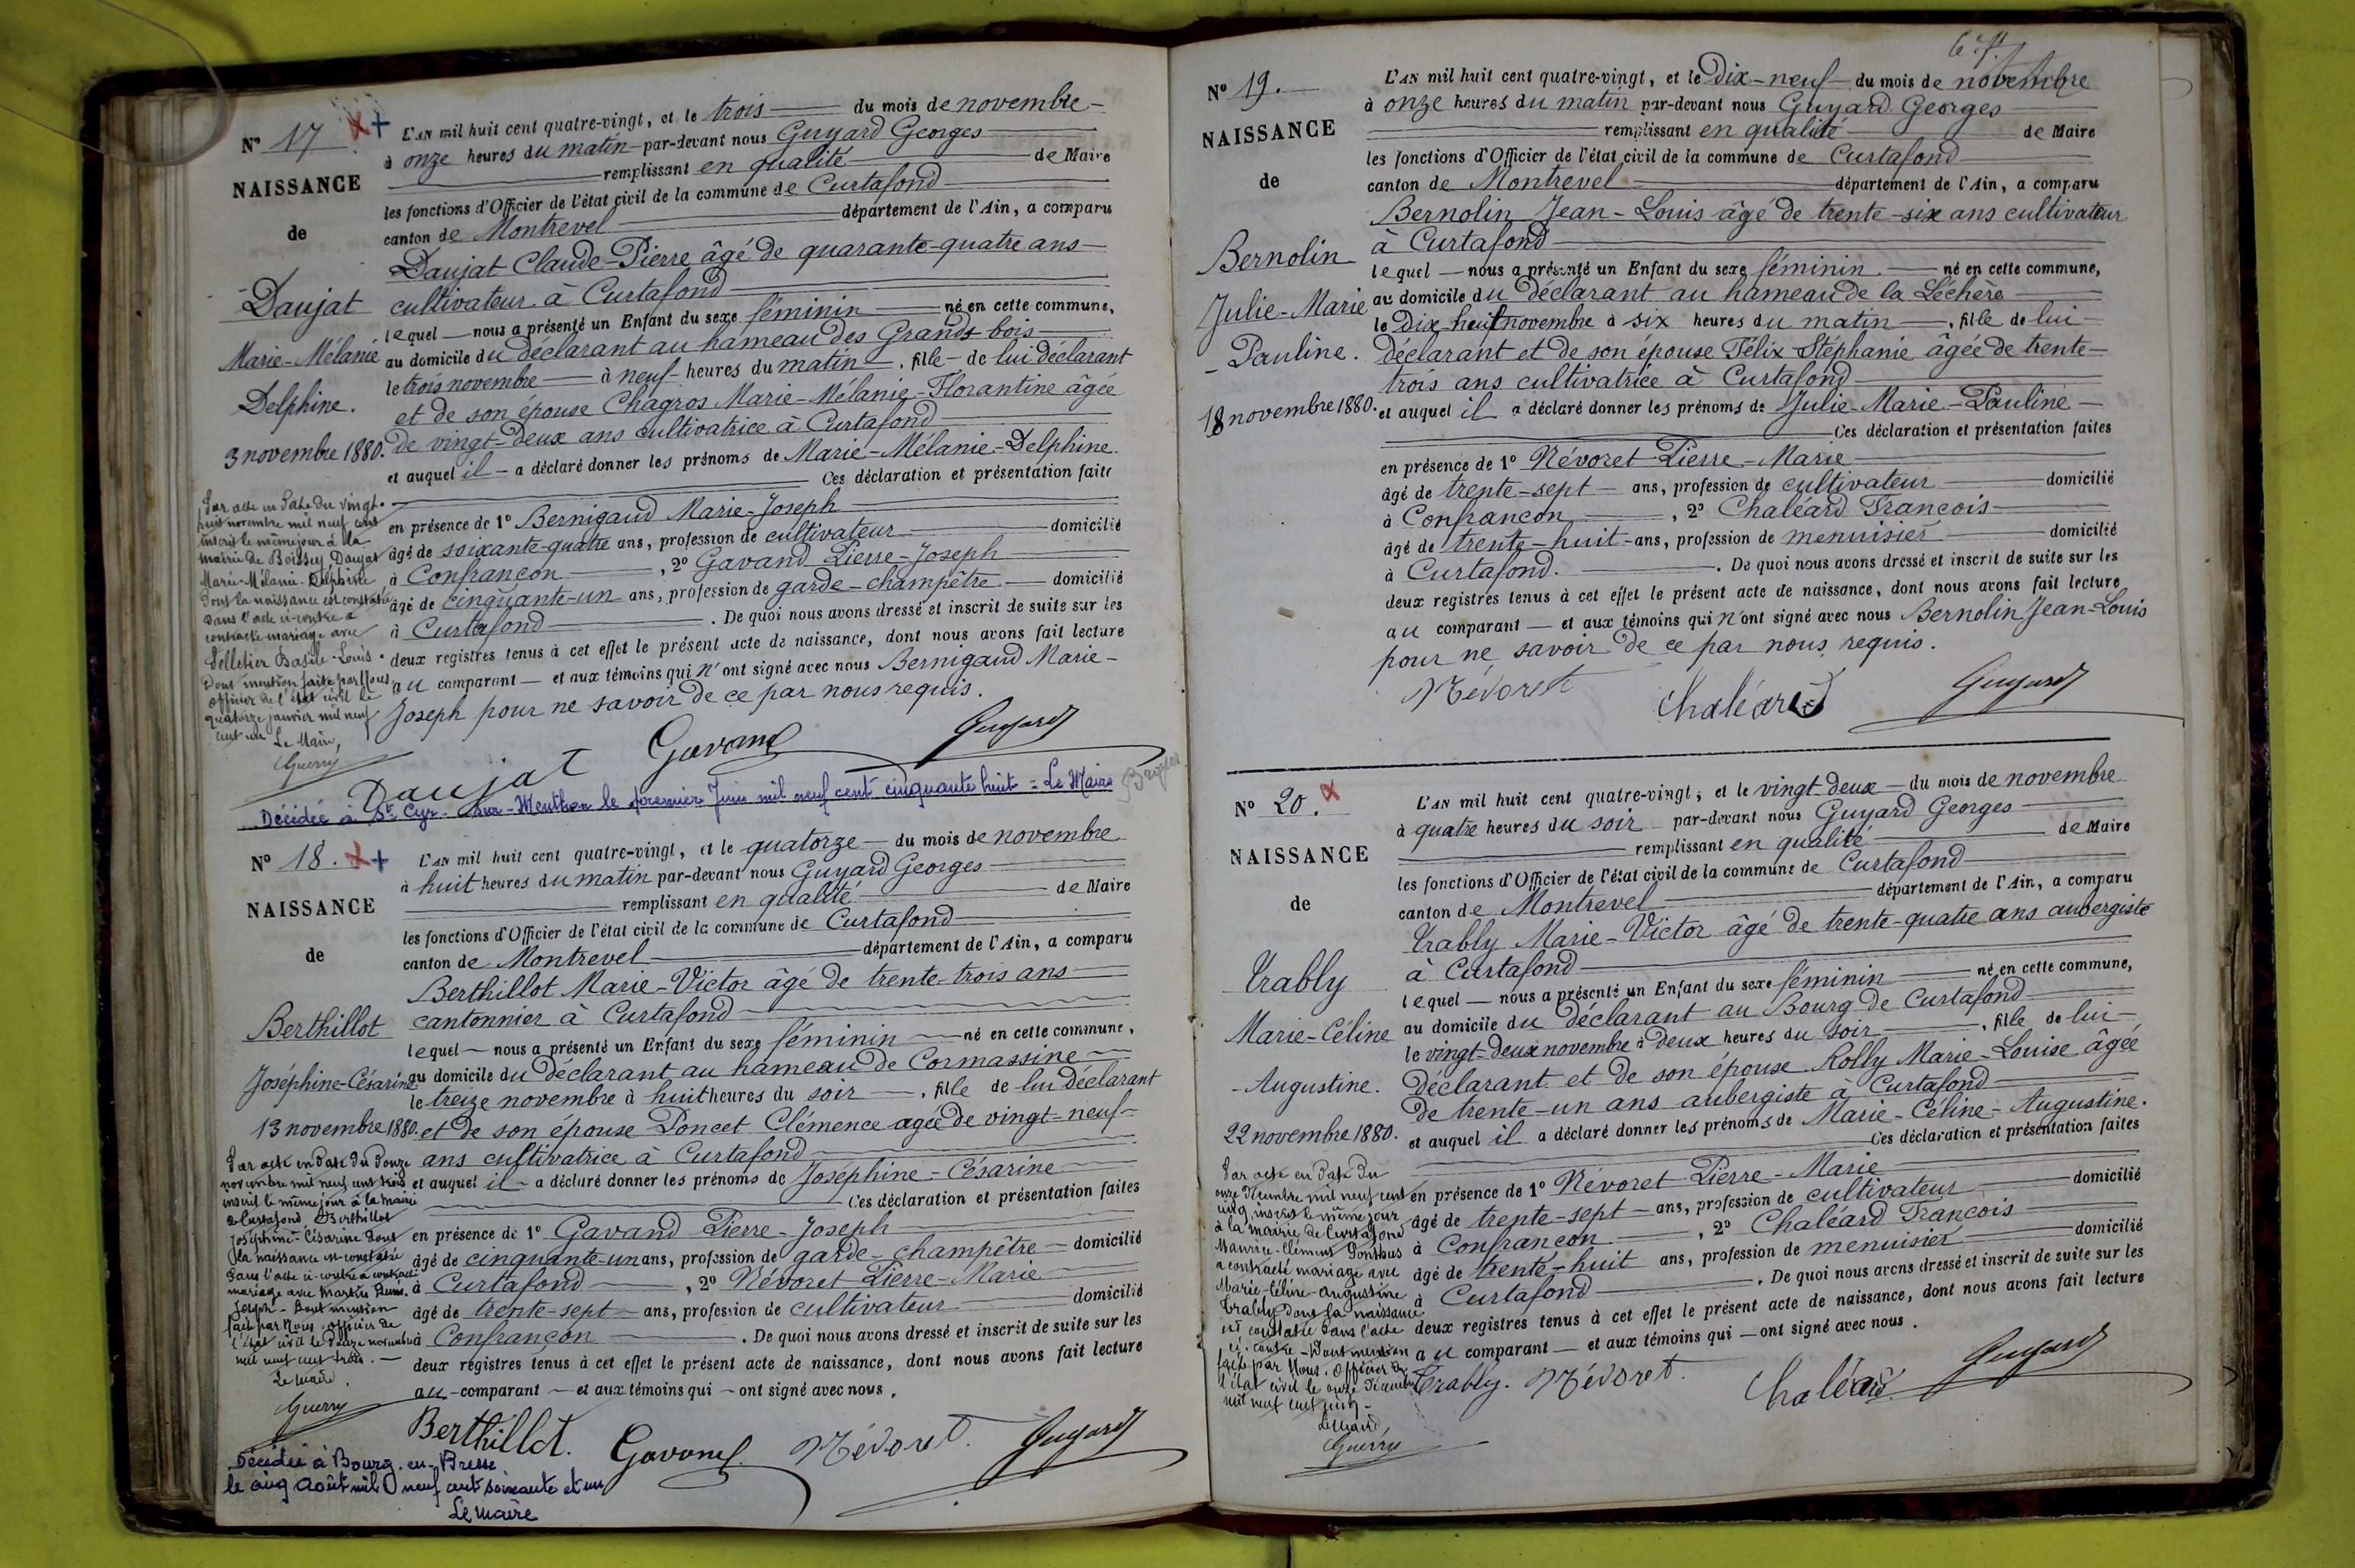 N° 17
NAISSANCE
de
Daujat
Marie-Mélanie
Delphine.
3 novembre 1880.
Par acte en date du vingt-
huit novembre mil neuf cent
inscrit le même jour à la
mairie de Boissey, Daujat
Marie-Mélanie-Delphine
dont la naissance est constatée
dans l'acte ci-contre a
contracté mariage avec
Pelletier Basile-Louis.
Dont mention faite par Nous
officier de l'état civil le
quatorze janvier mil neuf
cent un
Le Maire,
Guerry
L'AN mil huit cent quatre-vingt, et le trois du mois de novembre
à onze heures du matin par-devant nous Guyard Georges
remplissant en qualité de Maire
les fonctions d'Officier de l'état civil de la commune de Curtafond
canton de Montrevel département de l'Ain, a comparu
Daujat Claude-Pierre âgé de quarante-quatre ans
cultivateur à Curtafond
lequel nous a présenté un Enfant du sexe féminin né en cette commune,
au domicile du déclarant au hameau des Grands bois
le trois novembre à neuf heures du matin, fille de lui déclarant
et de son épouse Chagros Marie-Mélanie-Florantine âgée
de vingt-deux ans cultivatrice à Curtafond
et auquel il a déclaré donner les prénoms de Marie-Mélanie-Delphine.
Ces déclaration et présentation faite
en présence de 1° Bernigaud Marie-Joseph
âgé de soixante-quatre ans, profession de cultivateur domicilié
à Confrançon, 2° Gavand Pierre-Joseph
âgé de cinquante-un ans, profession de garde-champêtre domicilié
à Curtafond. De quoi nous avons dressé et inscrit de suite sur les
deux registres tenus à cet effet le présent acte de naissance, dont nous avons fait lecture
au comparant et aux témoins qui n'ont signé avec nous Bernigaud Marie-
Joseph pour ne savoir de ce par nous requis.
Daujat Gavand Guyard
Décédée à St Cyr-sur-Menthon le premier Juin mil neuf cent cinquante huit = Le Maire
N° 18.
NAISSANCE
de
Berthillot
Joséphine-Césarine
13 novembre 1880.
Par acte en date du douze
novembre mil neuf cent trois
inscrit le même jour à la mairie
de Curtafond, Berthillot
Joséphine-Césarine dont
la naissance est constatée
dans l'acte ci-contre a contracté
mariage avec Martin
Joseph - Dont mention
faite par Nous officier de
l'état civil le douze novembre
mil neuf cent trois.
Le Maire,
Guerry
L'AN mil huit cent quatre-vingt, et le quatorze du mois de novembre
à huit heures du matin par-devant nous Guyard Georges
remplissant en qualité de Maire
les fonctions d'Officier de l'état civil de la commune de Curtafond
canton de Montrevel département de l'Ain, a comparu
Berthillot Marie-Victor âgé de trente-trois ans
cantonnier à Curtafond
lequel nous a présenté un Enfant du sexe féminin né en cette commune,
au domicile du déclarant au hameau de Cormassine
le treize novembre à huit heures du soir, fille de lui déclarant
et de son épouse Poncet Clémence agée de vingt-neuf
ans cultivatrice à Curtafond
et auquel il a déclaré donner les prénoms de Joséphine-Césarine
Ces déclaration et présentation faites
en présence de 1° Gavand Pierre-Joseph
âgé de cinquante-un ans, profession de garde-champêtre domicilié
à Curtafond, 2° Névoret Pierre-Marie
âgé de trente-sept ans, profession de cultivateur domicilié
à Confrançon. De quoi nous avons dressé et inscrit de suite sur les
deux registres tenus à cet effet le présent acte de naissance, dont nous avons fait lecture
au comparant et aux témoins qui ont signé avec nous.
Berthillot. Gavand Névoret. Guyard
Décédée à Bourg-en-Bresse
le cinq Août mil neuf cent soixante et un
Le Maire
N° 19.
NAISSANCE
de
Bernolin
Julie-Marie
-Pauline.
18 novembre 1880.
L'AN mil huit cent quatre-vingt, et le Dix-neuf du mois de novembre
à onze heures du matin par-devant nous Guyard Georges
remplissant en qualité de Maire
les fonctions d'Officier de l'état civil de la commune de Curtafond
canton de Montrevel département de l'Ain, a comparu
Bernolin Jean-Louis âgé de trente-six ans cultivateur
à Curtafond
lequel nous a présenté un Enfant du sexe féminin né en cette commune,
au domicile du déclarant au hameau de la Léchère
le Dix-huit novembre à six heures du matin, fille de lui
déclarant et de son épouse Félix Stéphanie âgée de trente-
trois ans cultivatrice à Curtafond
et auquel il a déclaré donner les prénoms de Julie-Marie-Pauline
Ces déclaration et présentation faites
en présence de 1° Névoret Pierre-Marie
âgé de trente-sept ans, profession de cultivateur domicilié
à Confrançon, 2° Chaléard François
âgé de trente-huit ans, profession de menuisier domicilié
à Curtafond. De quoi nous avons dressé et inscrit de suite sur les
deux registres tenus à cet effet le présent acte de naissance, dont nous avons fait lecture
au comparant et aux témoins qui n'ont signé avec nous Bernolin Jean-Louis
pour ne savoir de ce par nous requis.
Névoret Chaléard Guyard
N° 20.
NAISSANCE
de
Trably
Marie-Céline
-Augustine.
22 novembre 1880.
Par acte en date du
onze décembre mil neuf cent
cinq, inscrit le même jour
à la mairie de Curtafond
Maurice-Clément Ponthus
a contracté mariage avec
Marie-Céline-Augustine
Trably dont la naissance
est constatée dans l'acte
ci-contre - Dont mention
faite par Nous, Officier de
l'état civil le onze décembre
mil neuf cent cinq -
Le Maire,
Guerry
L'AN mil huit cent quatre-vingt, et le vingt-deux du mois de novembre
à quatre heures du soir par-devant nous Guyard Georges
remplissant en qualité de Maire
les fonctions d'Officier de l'état civil de la commune de Curtafond
canton de Montrevel département de l'Ain, a comparu
Trably Marie-Victor âgé de trente-quatre ans aubergiste
à Curtafond
lequel nous a présenté un Enfant du sexe féminin né en cette commune,
au domicile du déclarant au Bourg de Curtafond
le vingt-deux novembre à deux heures du soir, fille de lui
déclarant et de son épouse Rolly Marie-Louise âgée
de trente-un ans aubergiste à Curtafond
et auquel il a déclaré donner les prénoms de Marie-Céline-Augustine.
Ces déclaration et présentation faites
en présence de 1° Névoret Pierre-Marie
âgé de trente-sept ans, profession de cultivateur domicilié
à Confrançon, 2° Chaléard François
âgé de trente-huit ans, profession de menuisier domicilié
à Curtafond. De quoi nous avons dressé et inscrit de suite sur les
deux registres tenus à cet effet le présent acte de naissance, dont nous avons fait lecture
au comparant et aux témoins qui ont signé avec nous.
Trably. Névoret. Chaléard Guyard